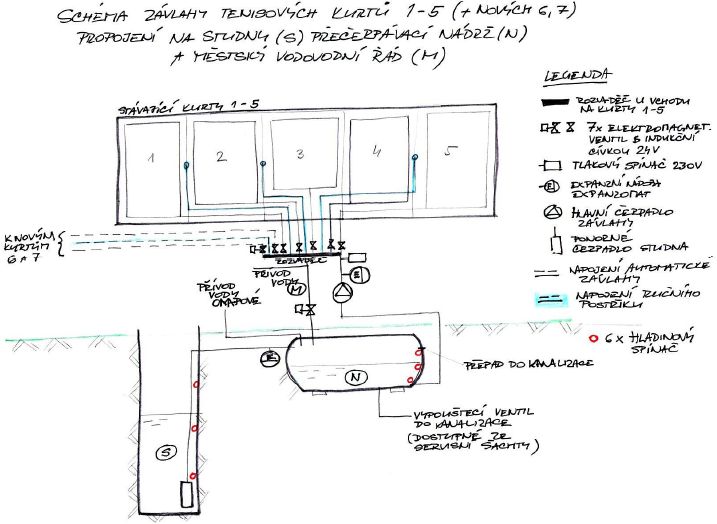 SCHÉMA ZÁVLAHY TENISOVÝCH KURTŮ 1-5 (+ NOVÝCH 6,7)
PROPOJENÍ NA STUDNY (S) PŘEČERPÁVACÍ NÁDRŽ (N)
A MĚSTSKÝ VODOVODNÍ ŘÁD (M)
LEGENDA
ROZVADĚČ U VCHODU
NA KURTY 1-5
7x ELEKTROMAGNET.
VENTIL S INDUKČNÍ
CÍVKOU 24V
TLAKOVÝ SPÍNAČ 230V
E
EXPANZNÍ NÁDOBA
EXPANZOMAT
HLAVNÍ ČERPADLO
ZÁVLAHY
PONORNÉ
ČERPADLO STUDNA
NAPOJENÍ AUTOMATICKÉ
ZÁVLAHY
NAPOJENÍ RUČNÍHO
POSTŘIKU
6x HLADINOVÝ
SPÍNAČ
STÁVAJÍCÍ KURTY 1-5
1
2
3
4
5
K NOVÝM
KURTŮM
6 A 7
ROZVADĚČ
PŘÍVOD
VODY
M
E
PŘÍVOD
VODY
E
N
PŘEPAD DO KANALIZACE
VYPOUŠTECÍ VENTIL
DO KANALIZACE
(DOSTUPNÉ ZE
SERVISNÍ ŠACHTY)
S